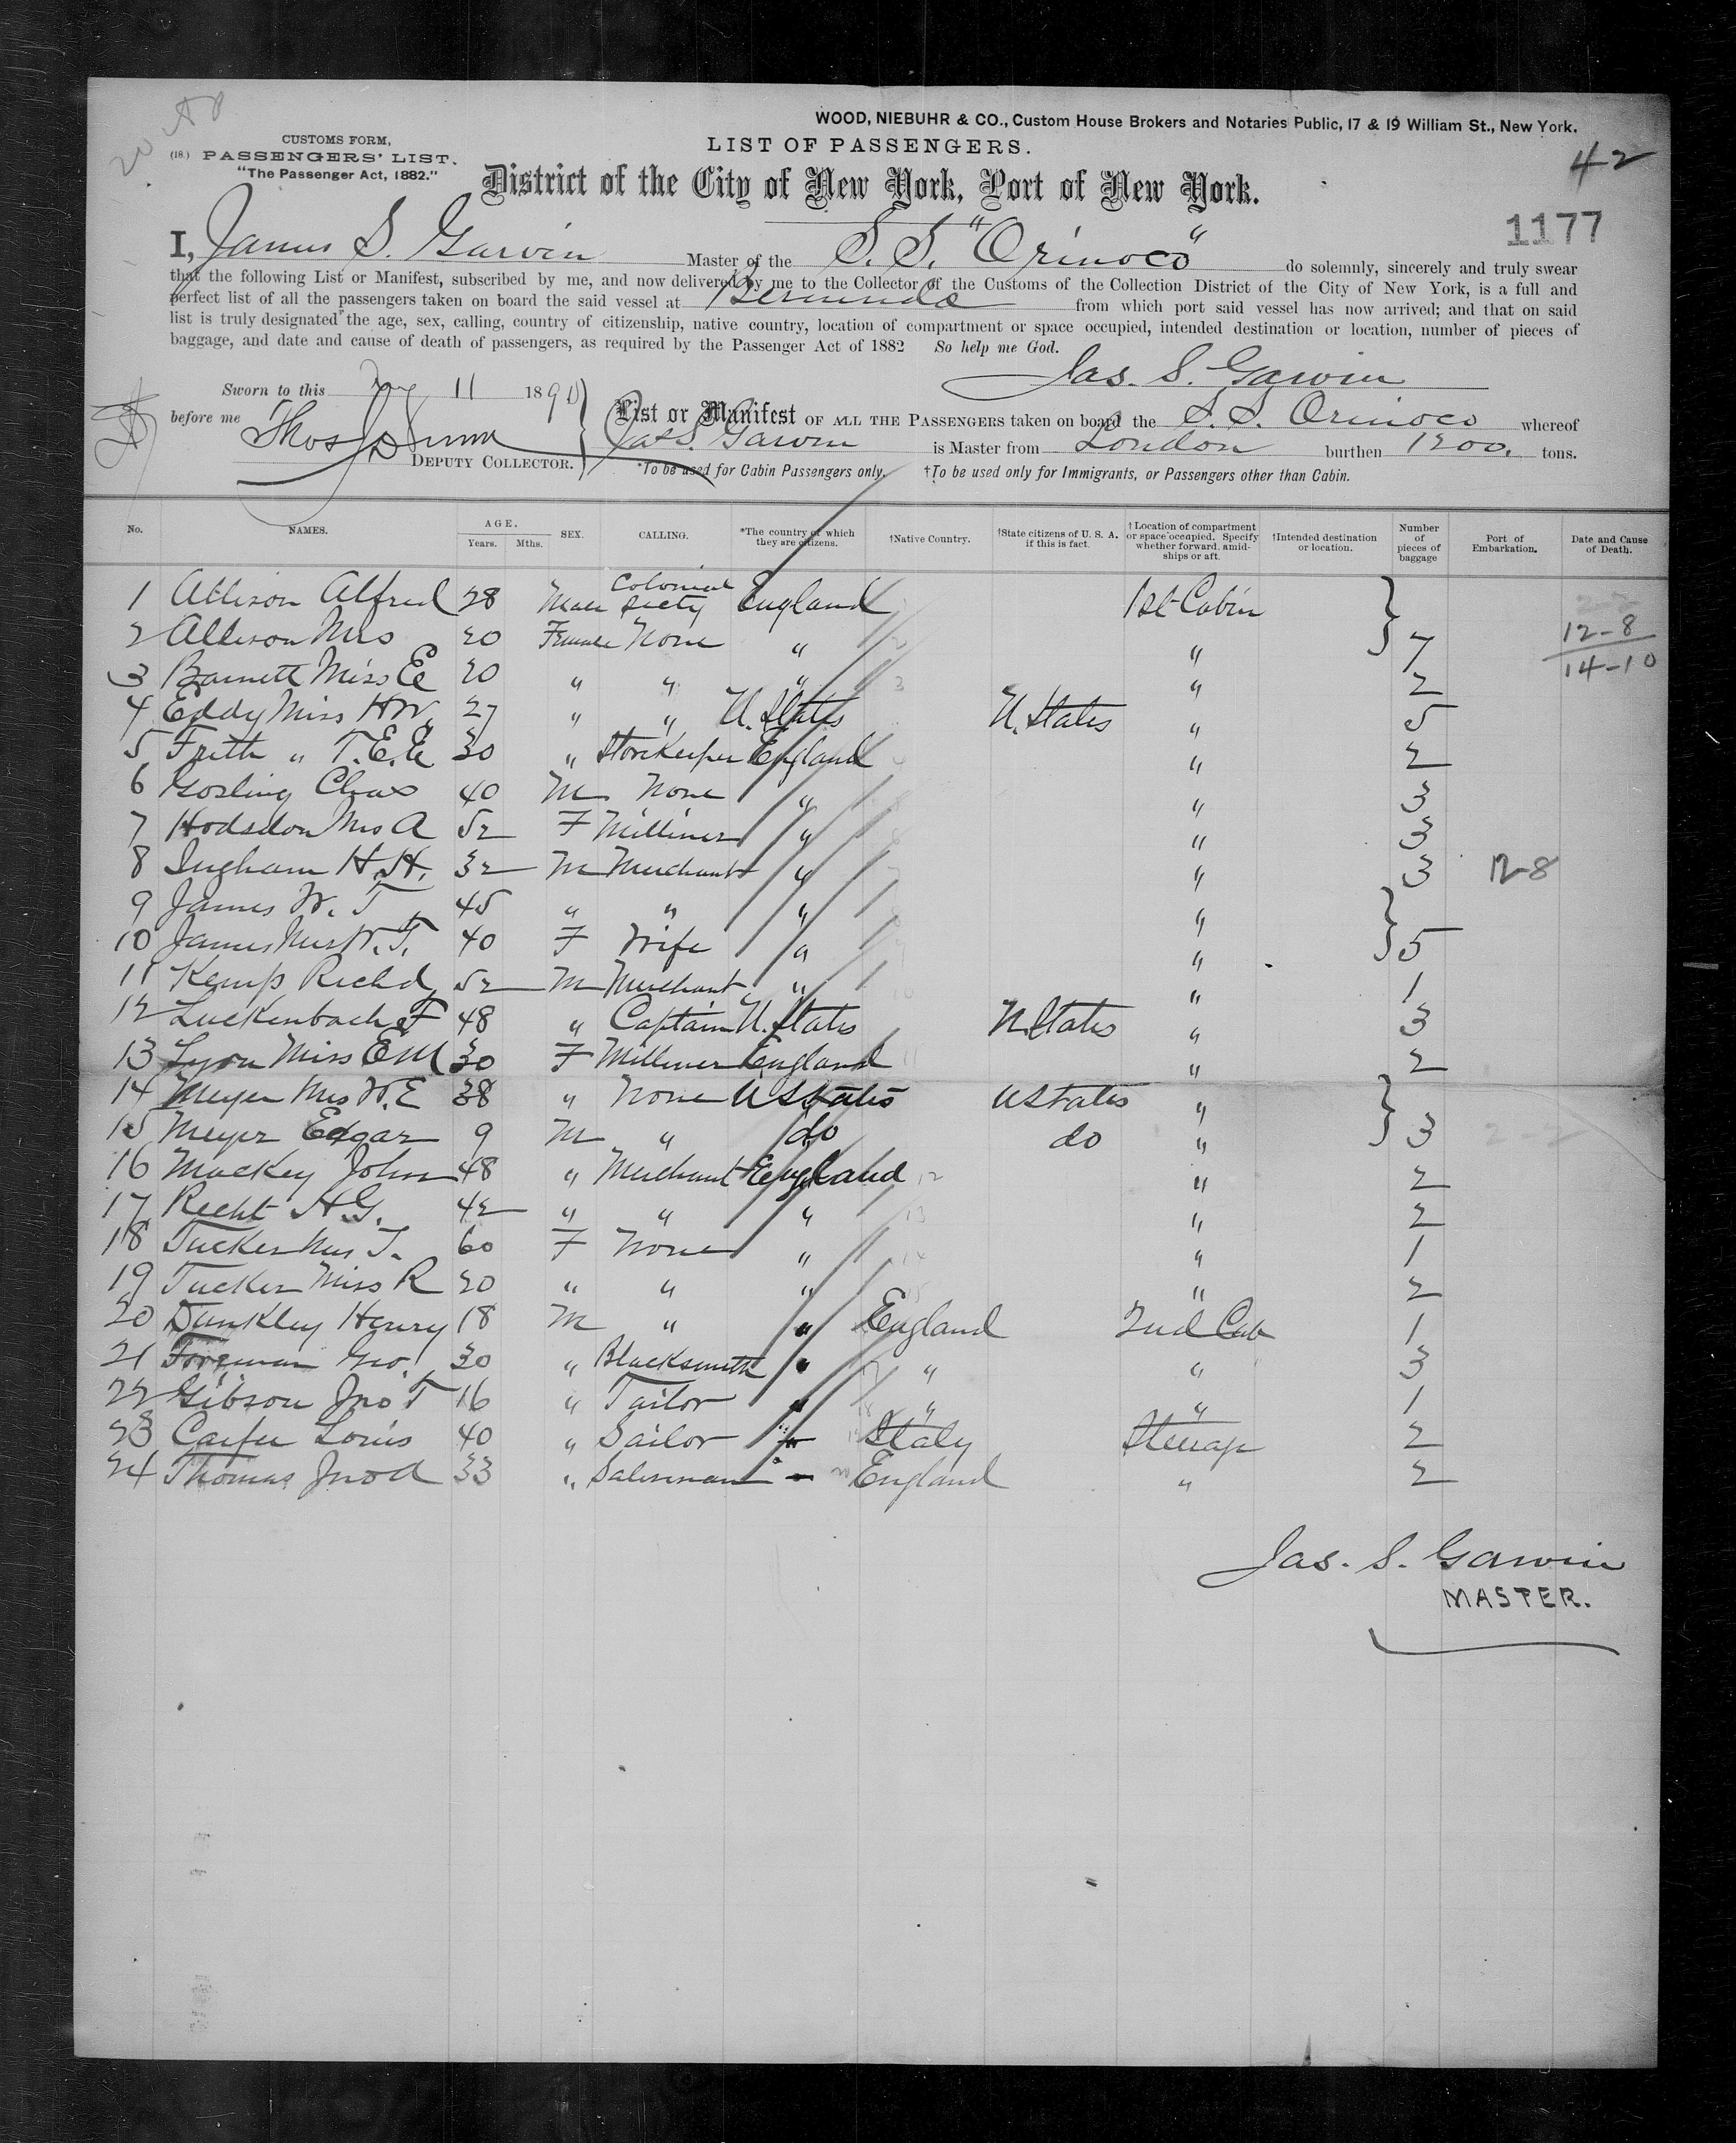 WOOD, NIEBUHR & CO., Custom House Brokers and Notaries Public, 17 & 19 William St., New York.
CUSTOMS FORM,
(18) PASSENGERS' LIST.
"The Passenger Act, 1882."
LIST OF PASSENGERS.
42
District of the City of New York, Port of New York.
1177
I, James S. Garvin Master of the S. S. "Orinoco" do solemnly, sincerely and truly swear
that the following List or Manifest, subscribed by me, and now delivered by me to the Collector of the Customs of the Collection District of the City of New York, is a full and
perfect list of all the passengers taken on board the said vessel at Bermuda from which port said vessel has now arrived; and that on said
list is truly designated the age, sex, calling, country of citizenship, native country, location of compartment or space occupied, intended destination or location, number of pieces of
baggage, and date and cause of death of passengers, as required by the Passenger Act of 1882 So help me God.
Jas. S. Garvin
Sworn to this 11 1890
before me Thos J Dunn
DEPUTY COLLECTOR.
List or Manifest OF ALL THE PASSENGERS taken on board the S. S. Orinoco whereof
Jas S. Garvin is Master from London burthen 1200. tons.
*To be used for Cabin Passengers only. †To be used only for Immigrants, or Passengers other than Cabin.
No. NAMES. AGE. Years. Mths. SEX. CALLING. *The country of which they are citizens. †Native Country. †State citizens of U. S. A. if this is fact. †Location of compartment or space occupied. Specify whether forward, amidships or aft. †Intended destination or location. Number of pieces of baggage Port of Embarkation. Date and Cause of Death.
1 Allison Alfred 28 Male Colonial Secty England 1st Cabin
2 Allison Mrs 20 Female None " " 7 12-8
3 Barnett Miss E 20 " " " " 2 14-10
4 Eddy Miss H W. 27 " " U. States U. States " 5
5 Frith " T. E. E 30 " Storekeeper England " 2
6 Gosling Chas 40 M None " " 3
7 Hodsdon Mrs A 52 F Milliner " " 3
8 Ingham H. H. 32 M Merchant " " 3 12-8
9 James W. T 45 " " " "
10 James Mrs W. T. 40 F Wife " " 5
11 Kemp Richd 52 M Merchant " " 1
12 Luckenbach F 48 " Captain U. States U. States " 3
13 Lyon Miss E M 30 F Milliner England " 2
14 Meyer Mrs W. E 38 " None U States U States "
15 Meyer Edgar 9 M " do do " 3
16 Mackey John 48 " Merchant England " 2
17 Recht H. G. 42 " " " " 2
18 Tucker Mrs T. 60 F None " " 1
19 Tucker Miss R 20 " " " " 2
20 Dunkley Henry 18 M " " England 2nd Cab 1
21 Foreman Geo 30 " Blacksmith " " " 3
22 Gibson Jno T 16 " Tailor " " " 1
23 Louis 40 " Sailor " Italy Steerage 2
24 Thomas Jno A 33 " Salesman " England " 2
Jas. S. Garvin
MASTER.